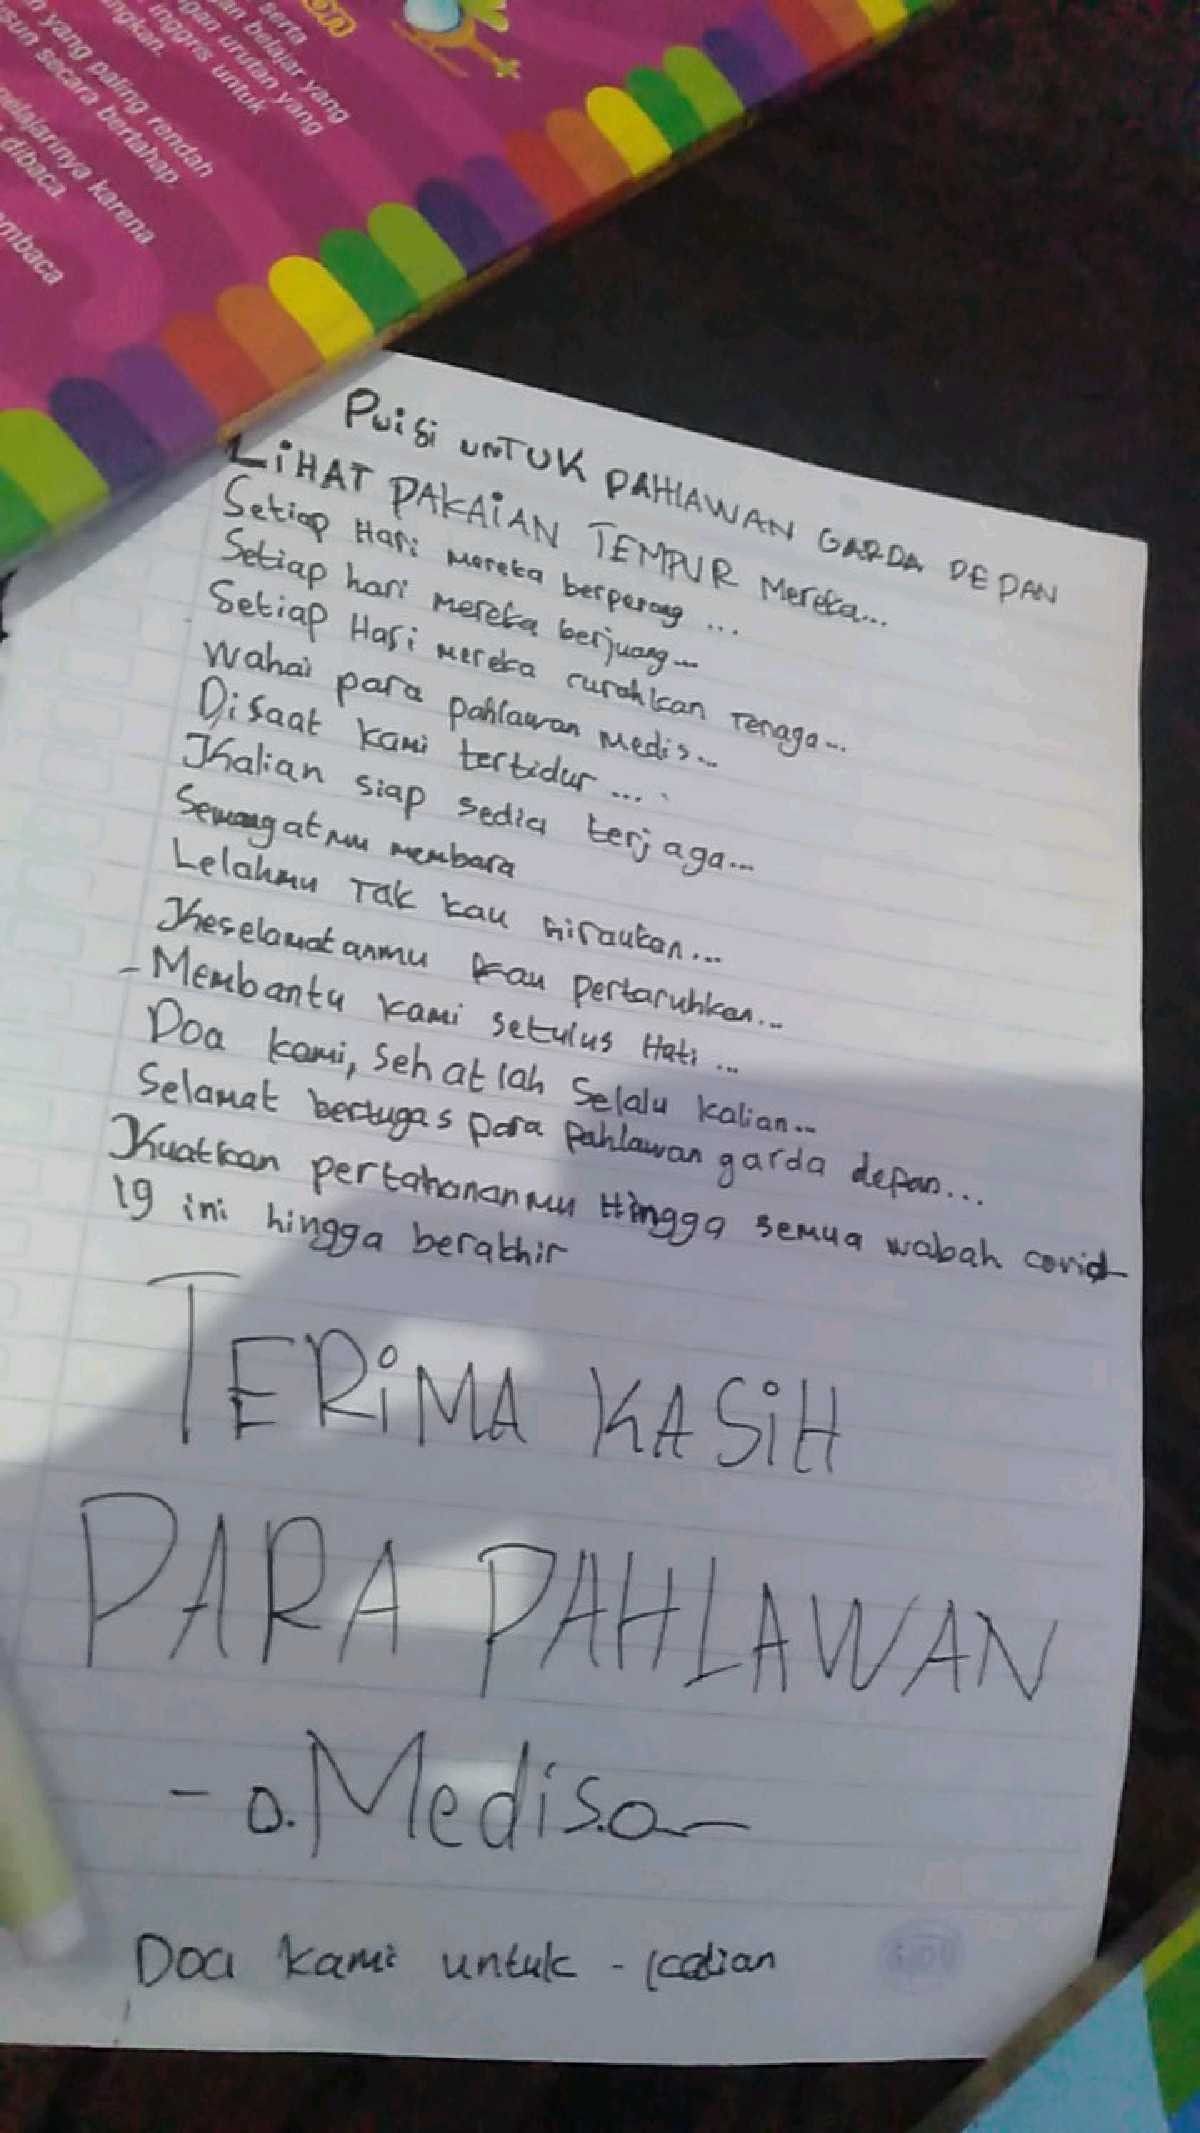 serta
an belajar yang
gan urutan yang
inggris untuk
ngkan.
n yang paling rendah
sun secara bertahap.
pelajarinya karena
dibaca.
mbaca
Puisi UNTUK PAHLAWAN GARDA DEPAN
LiHAT PAKAiAN TEMPUR Mereka...
Setiap Hari mereka berperang ...
Setiap hari mereka berjuang...
Setiap Hari mereka curahkan Tenaga...
Wahai para pahlawan Medis...
Disaat kami tertidur ....
Kalian siap sedia terjaga...
Semangatmu membara
Lelahmu Tak kau hiraukan...
Keselamatanmu kau pertaruhkan...
- Membantu kami setulus Hati ...
Doa kami, sehatlah Selalu kalian...
Selamat bertugas para pahlawan garda depan...
Kuatkan pertahananmu Hingga semua wabah covid
19 ini hingga berakhir
TERiMA KASiH
PARA PAHLAWAN
- o.Medis.o-
Doa kami untuk - kalian